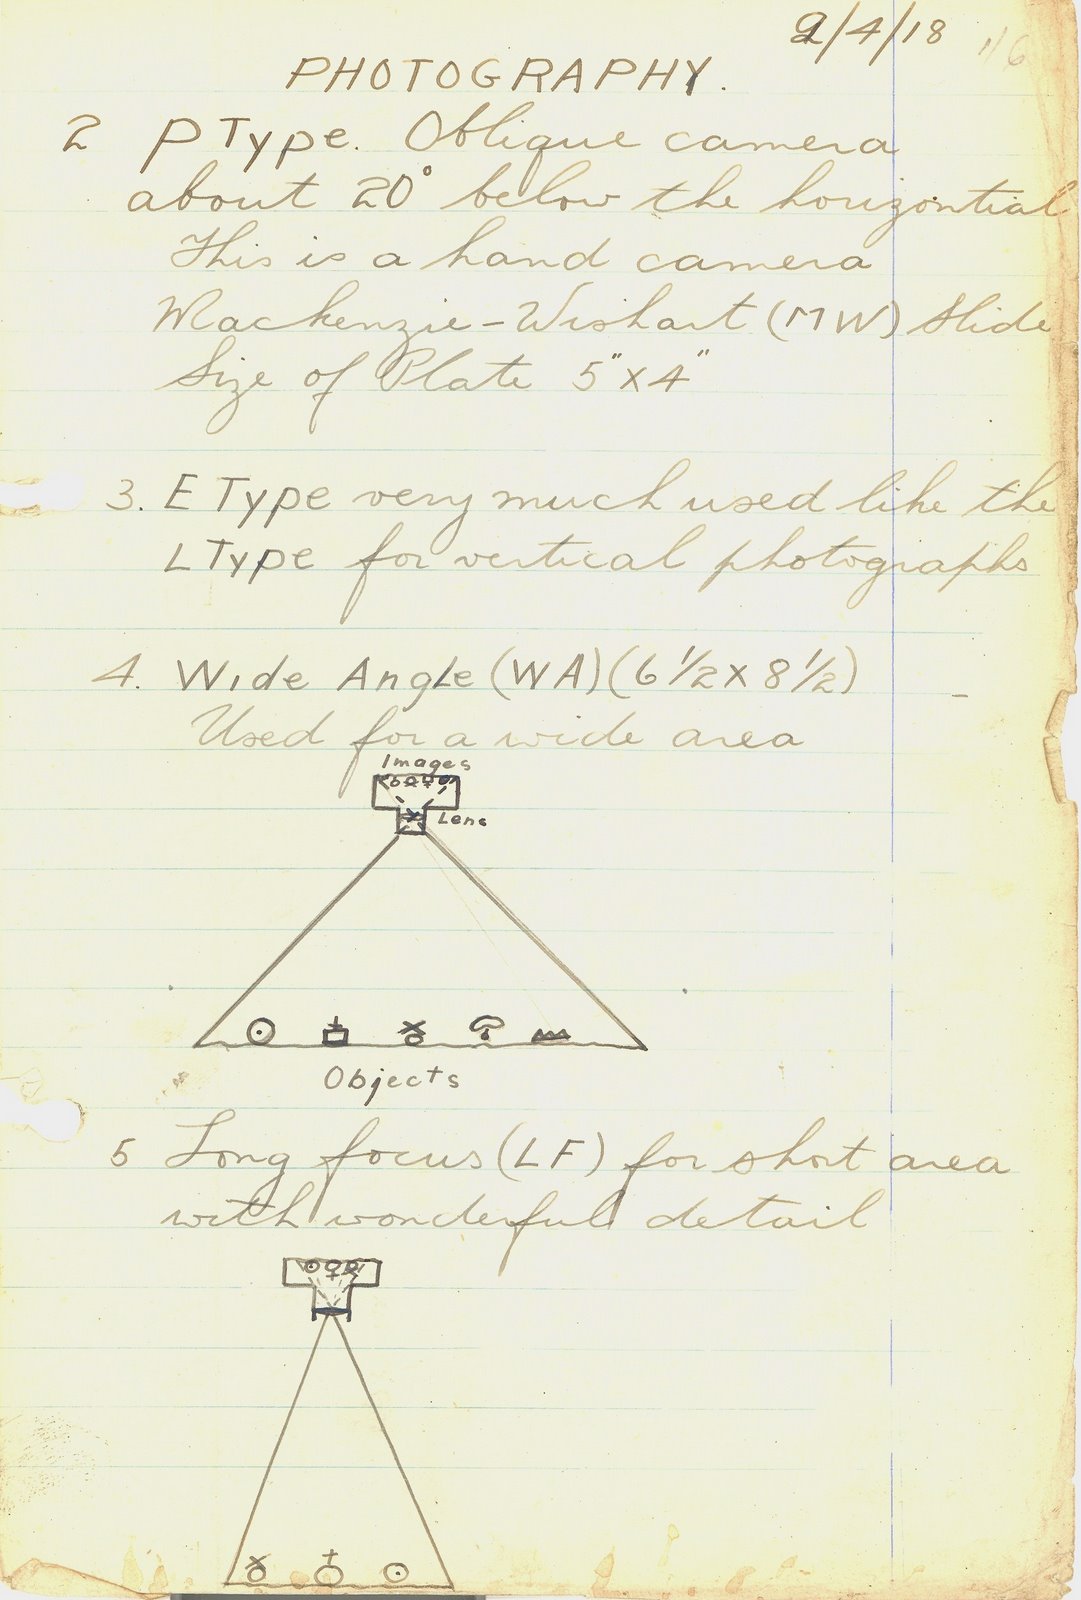 2/4/18
PHOTOGRAPHY.
2 P Type. Oblique camera
about 20° below the horizontial
This is a hand camera
Mackenzie-Wishart (MW) Slide
Size of Plate 5"x4"
3. E Type very much used like the
L Type for vertical photographs
4. Wide Angle (WA) (6 1/2 x 8 1/2)
Used for a wide area
Images
Lens
Objects
5 Long focus (LF) for short area
with wonderful detail